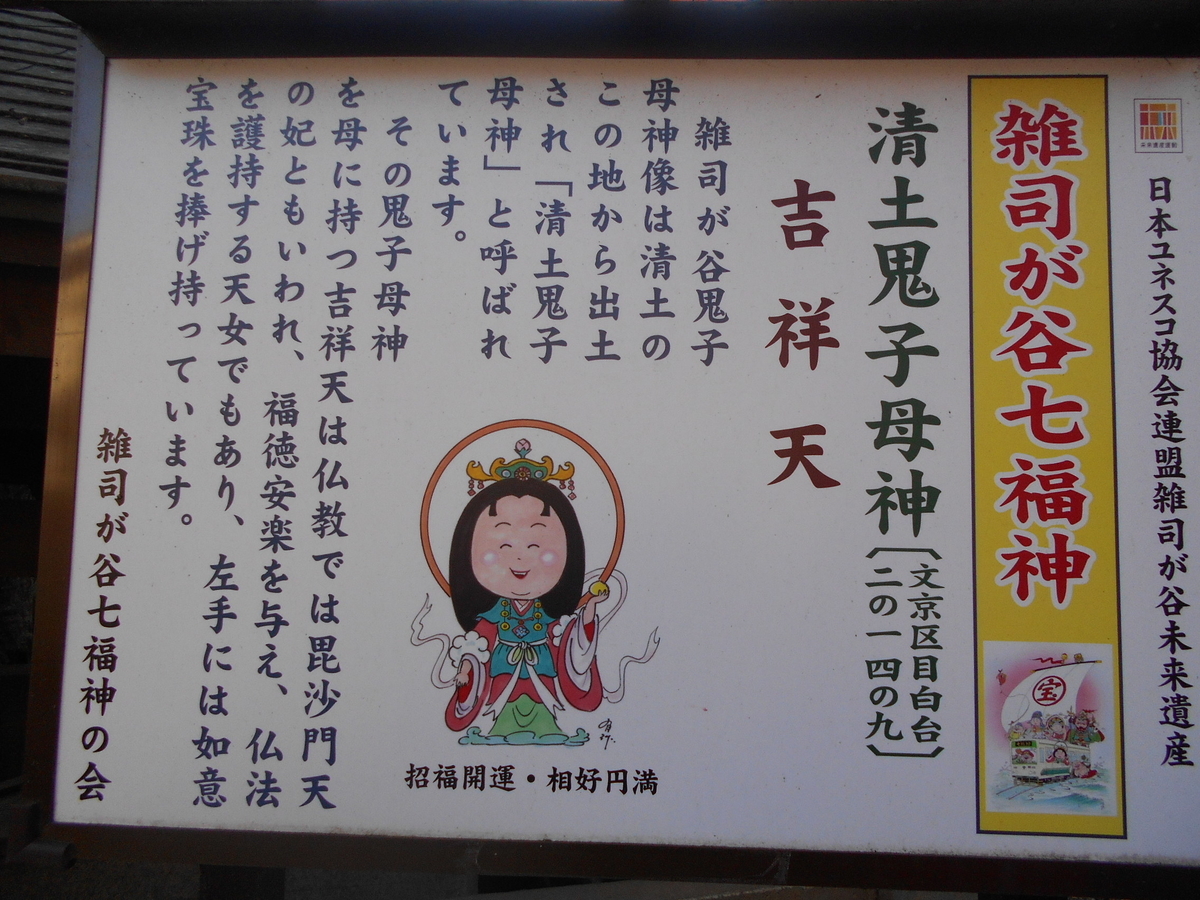 未来遺産運動
日本ユネスコ協会連盟雑司が谷未来遺産
雑司が谷七福神
宝
清土鬼子母神
〔文京区目白台
二の一四の九〕
吉祥天
雑司が谷鬼子
母神像は清土の
この地から出土
され「清土鬼子
母神」と呼ばれ
ています。
その鬼子母神
を母に持つ吉祥天は仏教では毘沙門天
の妃ともいわれ、福徳安楽を与え、仏法
を護持する天女でもあり、左手には如意
宝珠を捧げ持っています。
招福開運・相好円満
雑司が谷七福神の会